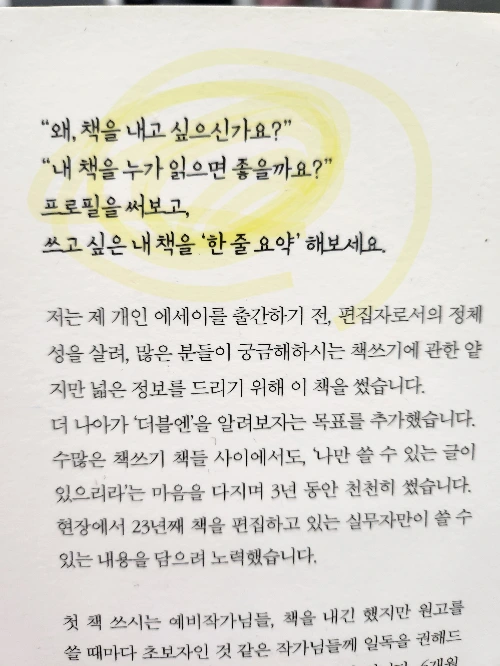 “왜, 책을 내고 싶으신가요?”
“내 책을 누가 읽으면 좋을까요?”
프로필을 써보고,
쓰고 싶은 내 책을 ‘한 줄 요약’ 해보세요.
저는 제 개인 에세이를 출간하기 전, 편집자로서의 정체
성을 살려, 많은 분들이 궁금해하시는 책쓰기에 관한 얕
지만 넓은 정보를 드리기 위해 이 책을 썼습니다.
더 나아가 ‘더블엔’을 알려보자는 목표를 추가했습니다.
수많은 책쓰기 책들 사이에서도, ‘나만 쓸 수 있는 글이
있으리라’는 마음을 다지며 3년 동안 천천히 썼습니다.
현장에서 23년째 책을 편집하고 있는 실무자만이 쓸 수
있는 내용을 담으려 노력했습니다.
첫 책 쓰시는 예비작가님들, 책을 내긴 했지만 원고를
쓸 때마다 초보자인 것 같은 작가님들께 일독을 권해드
6개월